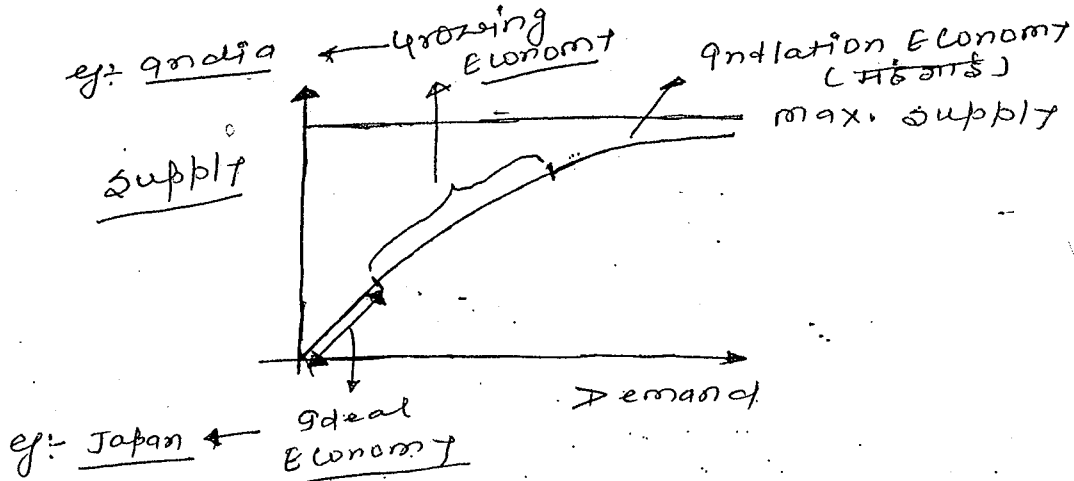 eg:- India ← Growing
Economy
Inflation Economy
(महंगाई)
max. supply
Supply
Demand
eg:- Japan ← Ideal
Economy